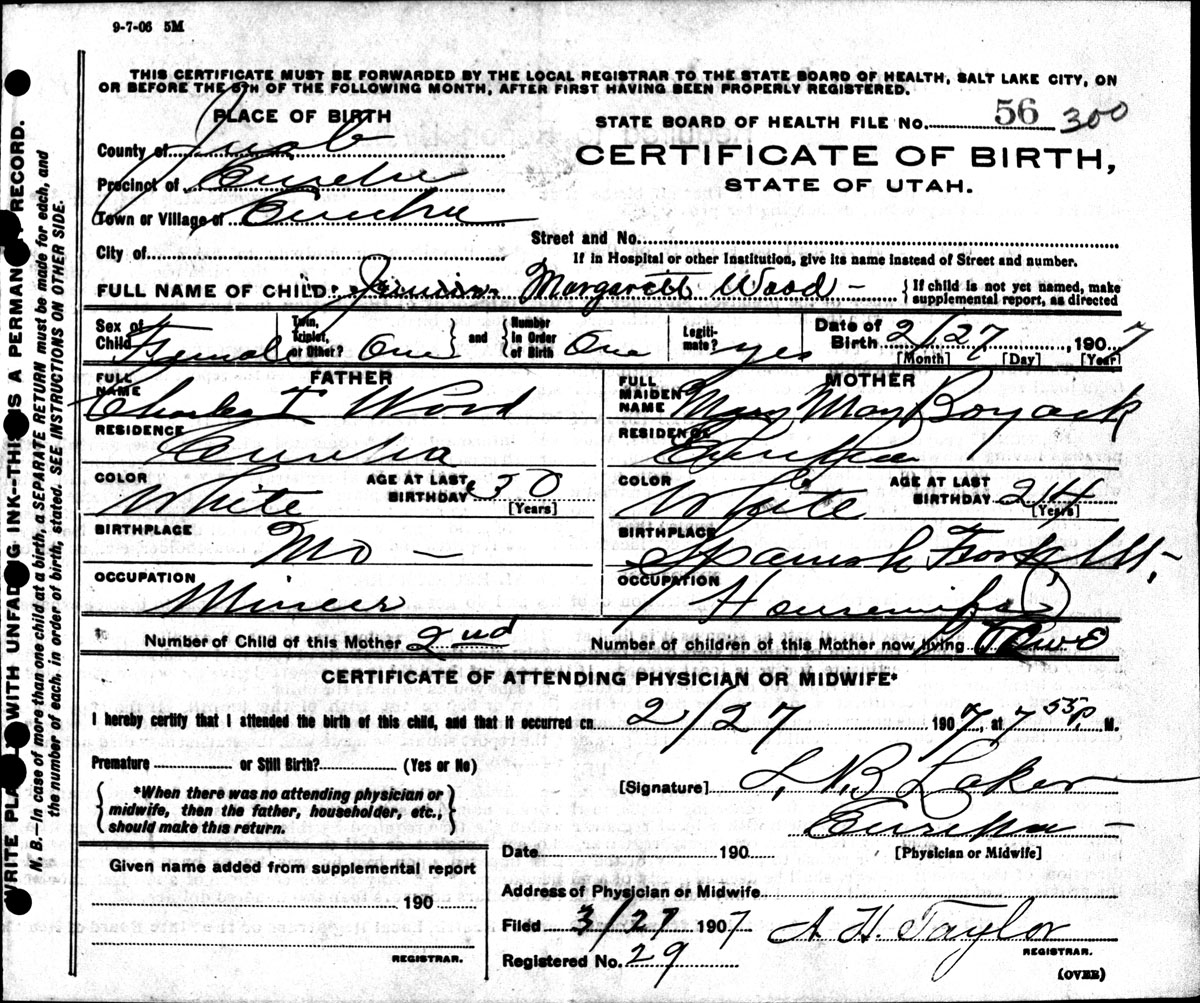 9-7-06 5M
THIS CERTIFICATE MUST BE FORWARDED BY THE LOCAL REGISTRAR TO THE STATE BOARD OF HEALTH, SALT LAKE CITY, ON
OR BEFORE THE 5TH OF THE FOLLOWING MONTH, AFTER FIRST HAVING BEEN PROPERLY REGISTERED.
PLACE OF BIRTH
STATE BOARD OF HEALTH FILE No. 56 300
County of Juab
CERTIFICATE OF BIRTH,
Precinct of Eureka
STATE OF UTAH.
Town or Village of Eureka
Street and No.
City of
If in Hospital or other Institution, give its name instead of Street and number.
FULL NAME OF CHILD: Margarett Wood
{ If child is not yet named, make
supplemental report, as directed
Sex of Child Femal
Twin, Triplet, or Other? One } and { Number In Order of Birth One
Legitimate? yes
Date of Birth 2/27, 1907
[Month] [Day] [Year]
FATHER
FULL NAME Charles T Wood
RESIDENCE Eureka
COLOR White AGE AT LAST BIRTHDAY 30
[Years]
BIRTHPLACE Mo
OCCUPATION Miner
MOTHER
FULL MAIDEN NAME Mary May Boyack
RESIDENCE Eureka
COLOR White AGE AT LAST BIRTHDAY 24
[Years]
BIRTHPLACE Spanish Fork Ut.
OCCUPATION Housewife
Number of Child of this Mother 2nd
Number of children of this Mother now living Two
CERTIFICATE OF ATTENDING PHYSICIAN OR MIDWIFE*
I hereby certify that I attended the birth of this child, and that it occurred on 2/27 1907, at 7 55 P. M.
Premature or Still Birth? (Yes or No)
{ *When there was no attending physician or
midwife, then the father, householder, etc.,
should make this return. }
[Signature] Laker
Eureka
[Physician or Midwife]
Date 190
Given name added from supplemental report
190
REGISTRAR.
Address of Physician or Midwife
Filed 3/27 1907 A H. Taylor
REGISTRAR.
Registered No. 29
(OVER)
WRITE PLAINLY WITH UNFADING INK--THIS IS A PERMANENT RECORD.
N. B.--In case of more than one child at a birth, a SEPARATE RETURN must be made for each, and
the number of each, in order of birth, stated. SEE INSTRUCTIONS ON OTHER SIDE.